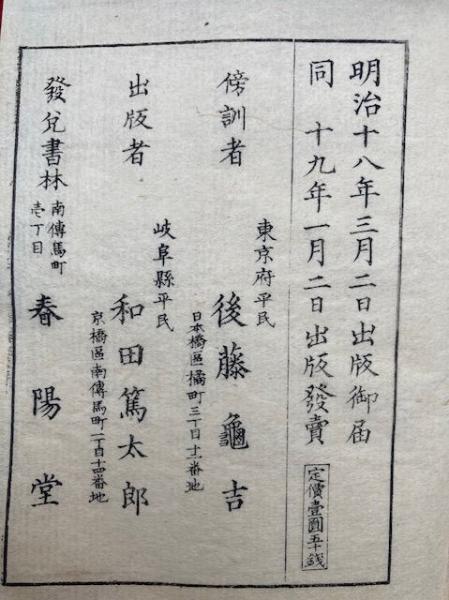 明治十八年三月二日出版御届
同 十九年一月二日出版發賣
定價壹圓五十錢
傍訓者
東京府平民
後藤龜吉
日本橋區橘町三丁目十一番地
出版者
岐阜縣平民
和田篤太郎
京橋區南傳馬町二丁目十四番地
發兌書林
南傳馬町
壱丁目
春陽堂